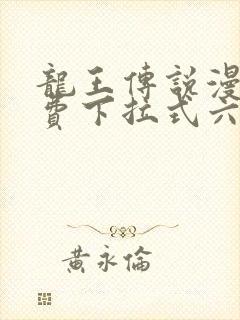 龍王傳說漫
費下拉式六
黃永倫